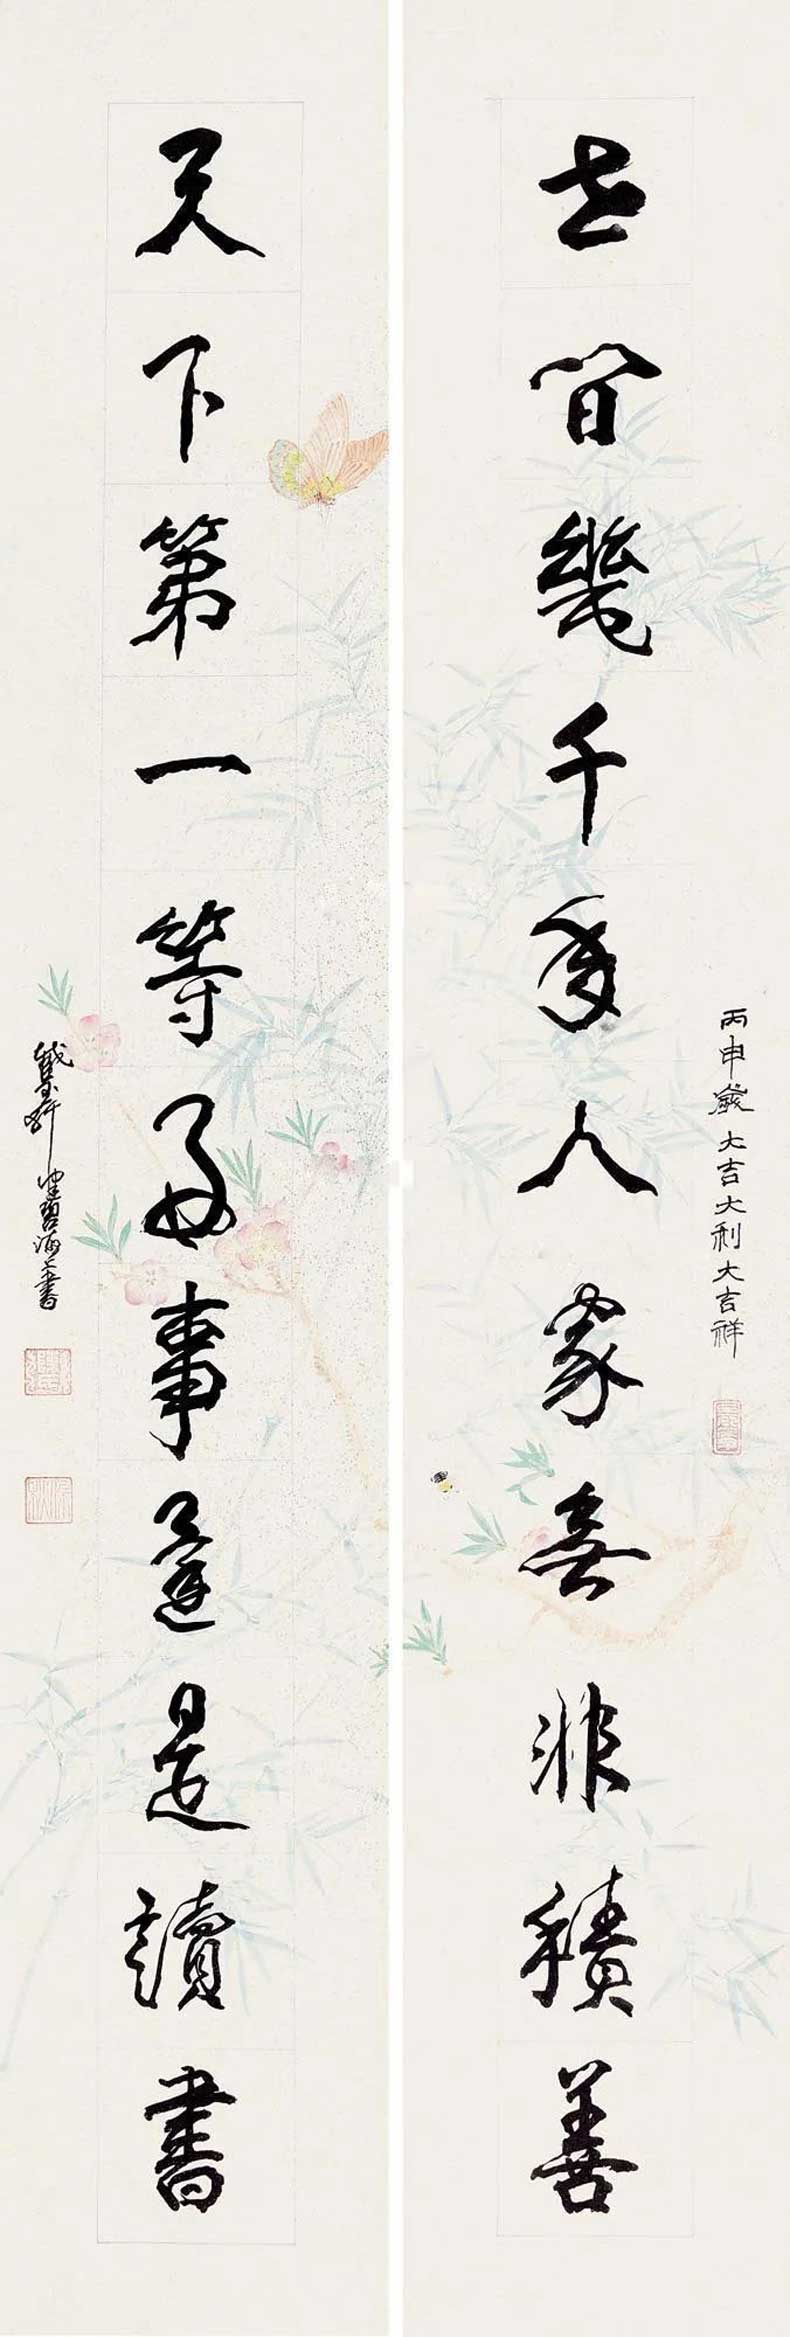 世間幾千年人家無非積善
丙申歲大吉大利大吉祥
天下第一等好事還是讀書